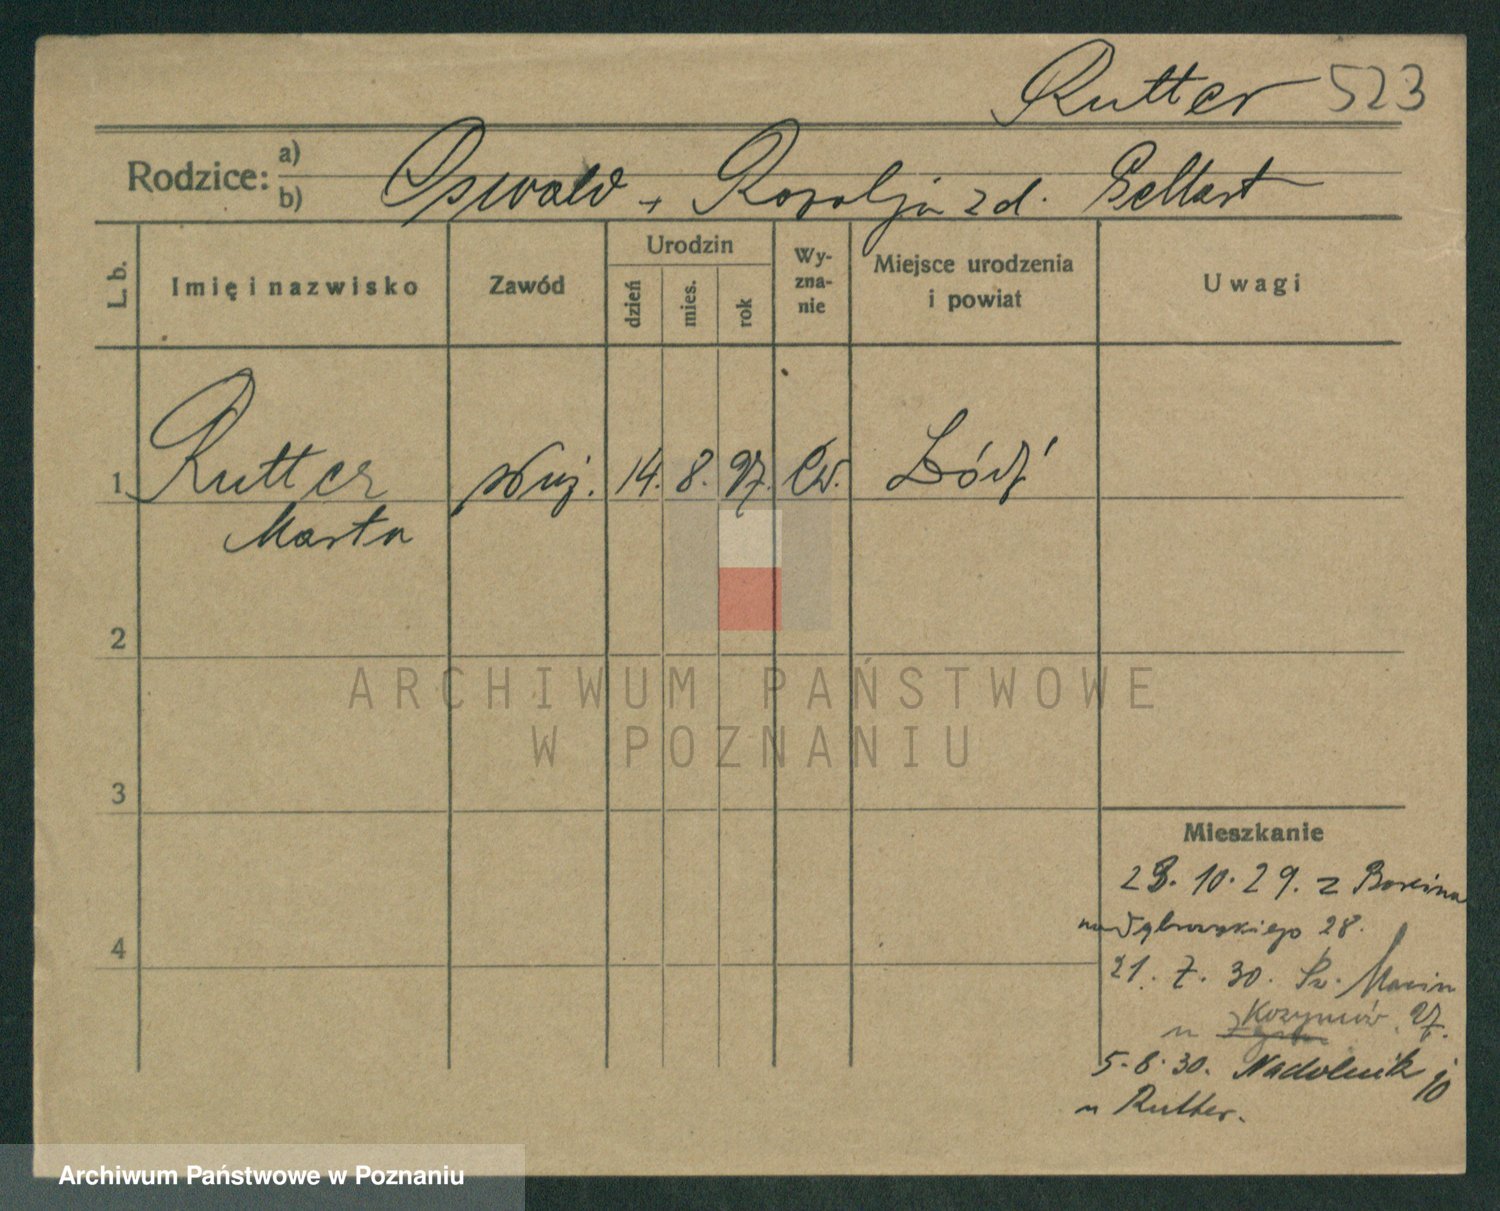 Rutter 523
Rodzice: a)
b)
Oswald + Rozalja z d. Gellart
L. b.
Imię i nazwisko
Zawód
Urodzin
dzień
mies.
rok
Wy-
zna-
nie
Miejsce urodzenia
i powiat
Uwagi
1 Rutter 14. 8. 97. Ew. Łódź
Marta
2
3
4
Mieszkanie
28. 10. 29. z
Dąbrowskiego 28.
21. 7. 30. Św. Marcin
u 27.
5. 8. 30. Nadolnik 10
u Rutter.
ARCHIWUM PAŃSTWOWE
W POZNANIU
Archiwum Państwowe w Poznaniu